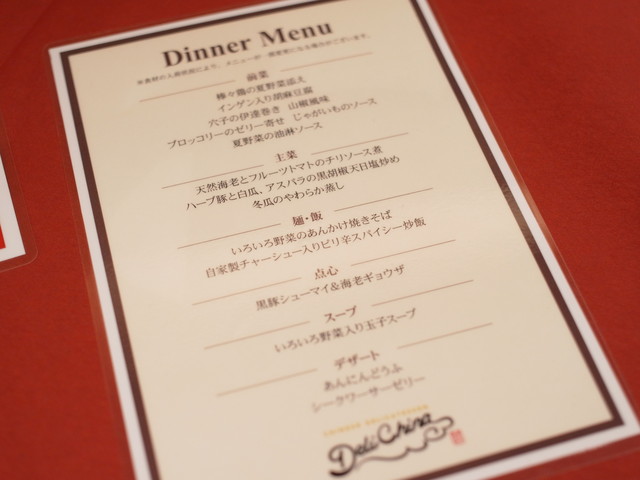 Dinner Menu
※食材の入荷状況により、メニューが一部変更になる場合がございます。
前菜
棒々鶏の夏野菜添え
インゲン入り胡麻豆腐
穴子の伊達巻き 山椒風味
ブロッコリーのゼリー寄せ じゃがいものソース
夏野菜の油淋ソース
主菜
天然海老とフルーツトマトのチリソース煮
ハーブ豚と白瓜、アスパラの黒胡椒天日塩炒め
冬瓜のやわらか蒸し
麺・飯
いろいろ野菜のあんかけ焼きそば
自家製チャーシュー入りピリ辛スパイシー炒飯
点心
黒豚シューマイ&海老ギョウザ
スープ
いろいろ野菜入り玉子スープ
デザート
あんにんどうふ
シークワーサーゼリー
CHINESE DELICATESSEN
Deli China